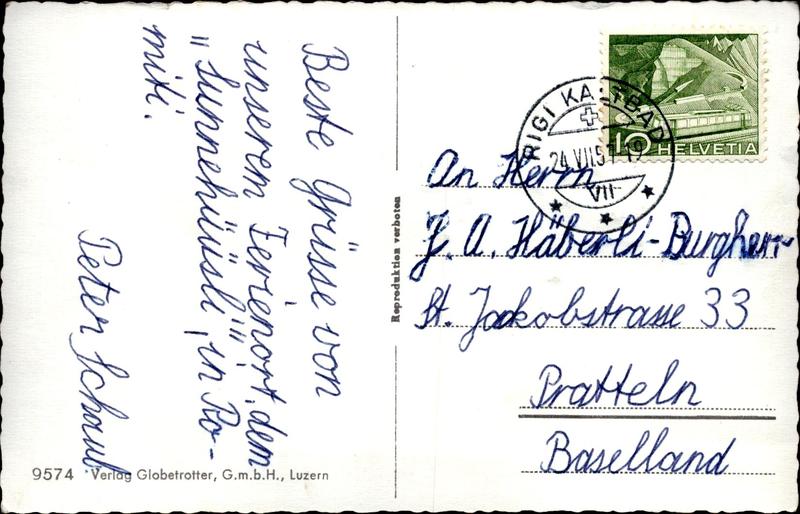 Beste Grüsse von
unserem Ferienort, dem
"Sunnehüüsli", in Ro-
miti.
Peter Schaub
9574 Verlag Globetrotter, G.m.b.H., Luzern
Reproduktion verboten
RIGI KALTBAD
24.VII.57-19
VII
10 HELVETIA
An Herrn
J. A. Häberli-Burgherr
St. Jakobstrasse 33
Pratteln
Baselland